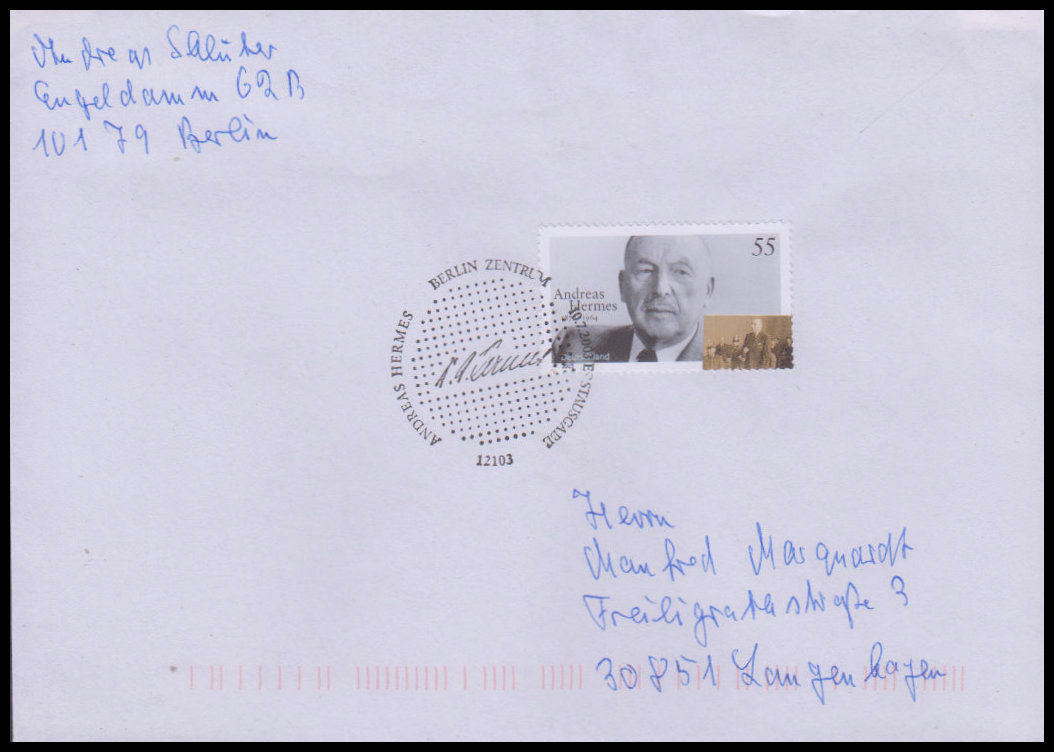 Andreas Schlüter
Engeldamm 62B
10179 Berlin
55
Andreas
Hermes
1878-1964
Deutschland
BERLIN ZENTRUM
ANDREAS HERMES
ERSTAUSGABE
A. Hermes
12103
Herrn
Manfred Marquardt
Freiligrathstraße 3
30851 Langenhagen